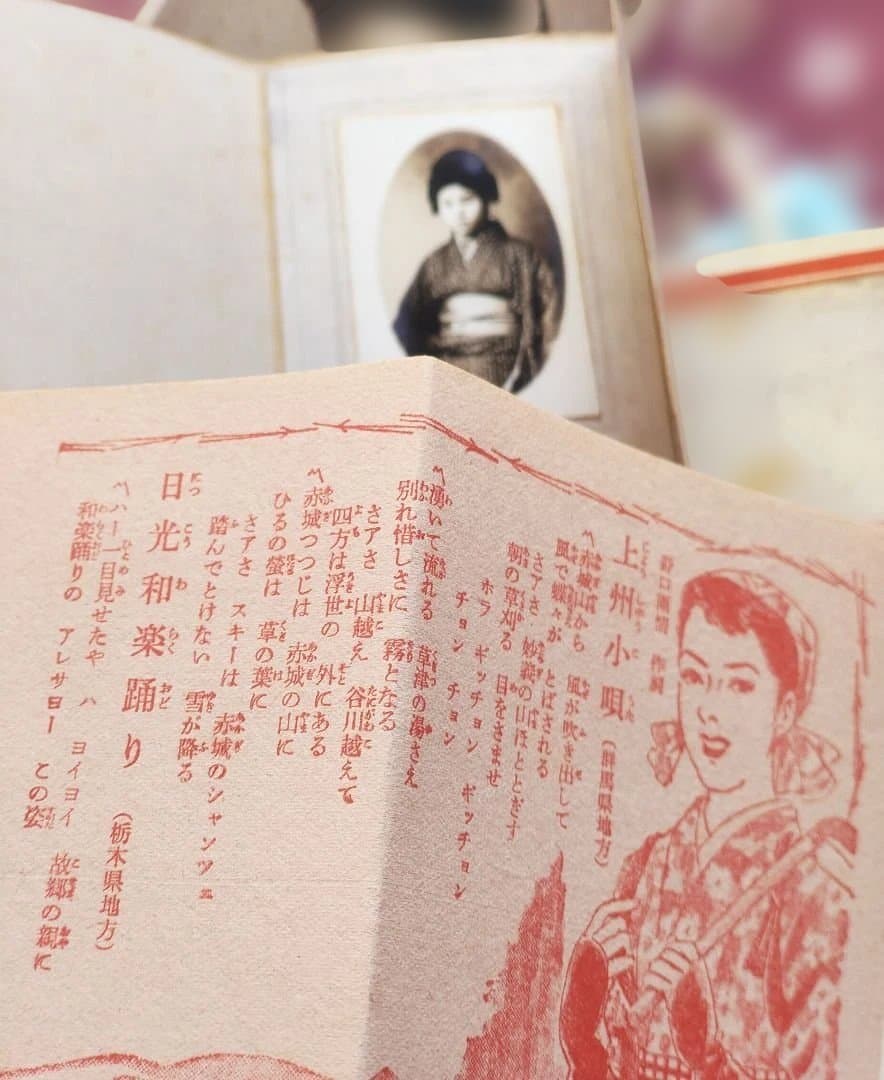 上州小唄(群馬県地方)
野口雨情 作詞
〽赤城山から 風が吹き出して
風で蝶々が とばされる
さアさ 妙義の山ほととぎす
朝の草刈る 目をさませ
ホラ ギッチョン ギッチョン
チョン チョン
〽湧いて流れる 草津の湯さえ
別れ惜しさに 霧となる
さアさ 山越え 谷川越えて
四方は浮世の 外にある
〽赤城つつじは 赤城の山に
ひるの螢は 草の葉に
さアさ スキーは 赤城のシャンツェ
踏んでとけない 雪が降る
日光和楽踊り(栃木県地方)
〽ハー一目見せたや ハ ヨイヨイ 故郷の親に
和楽踊りの アレサヨー この姿